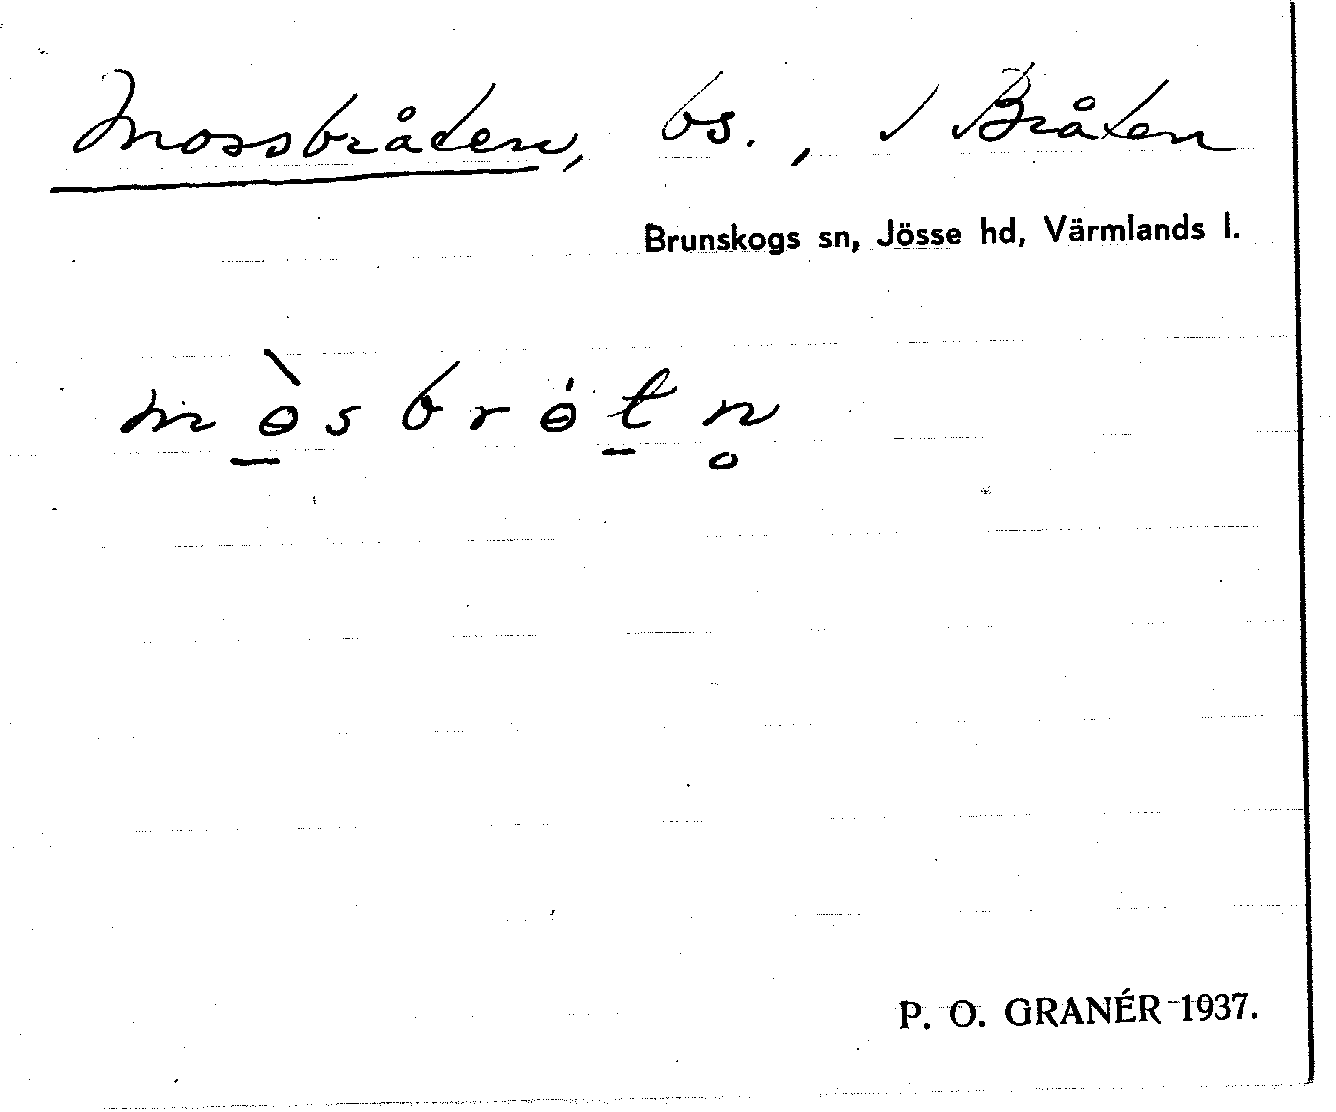 Mossbråten, bs., / Bråten
Brunskogs sn, Jösse hd, Värmlands l.
mɵ̀sbrɵ́tn̥
P. O. GRANÉR 1937.